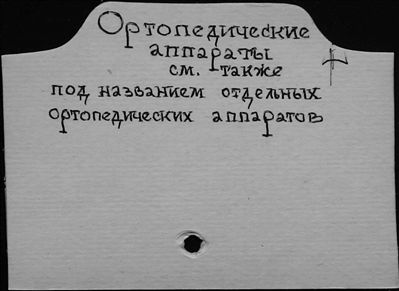 Ортопедические
аппараты
см. также
под названием отдельных
ортопедических аппаратов